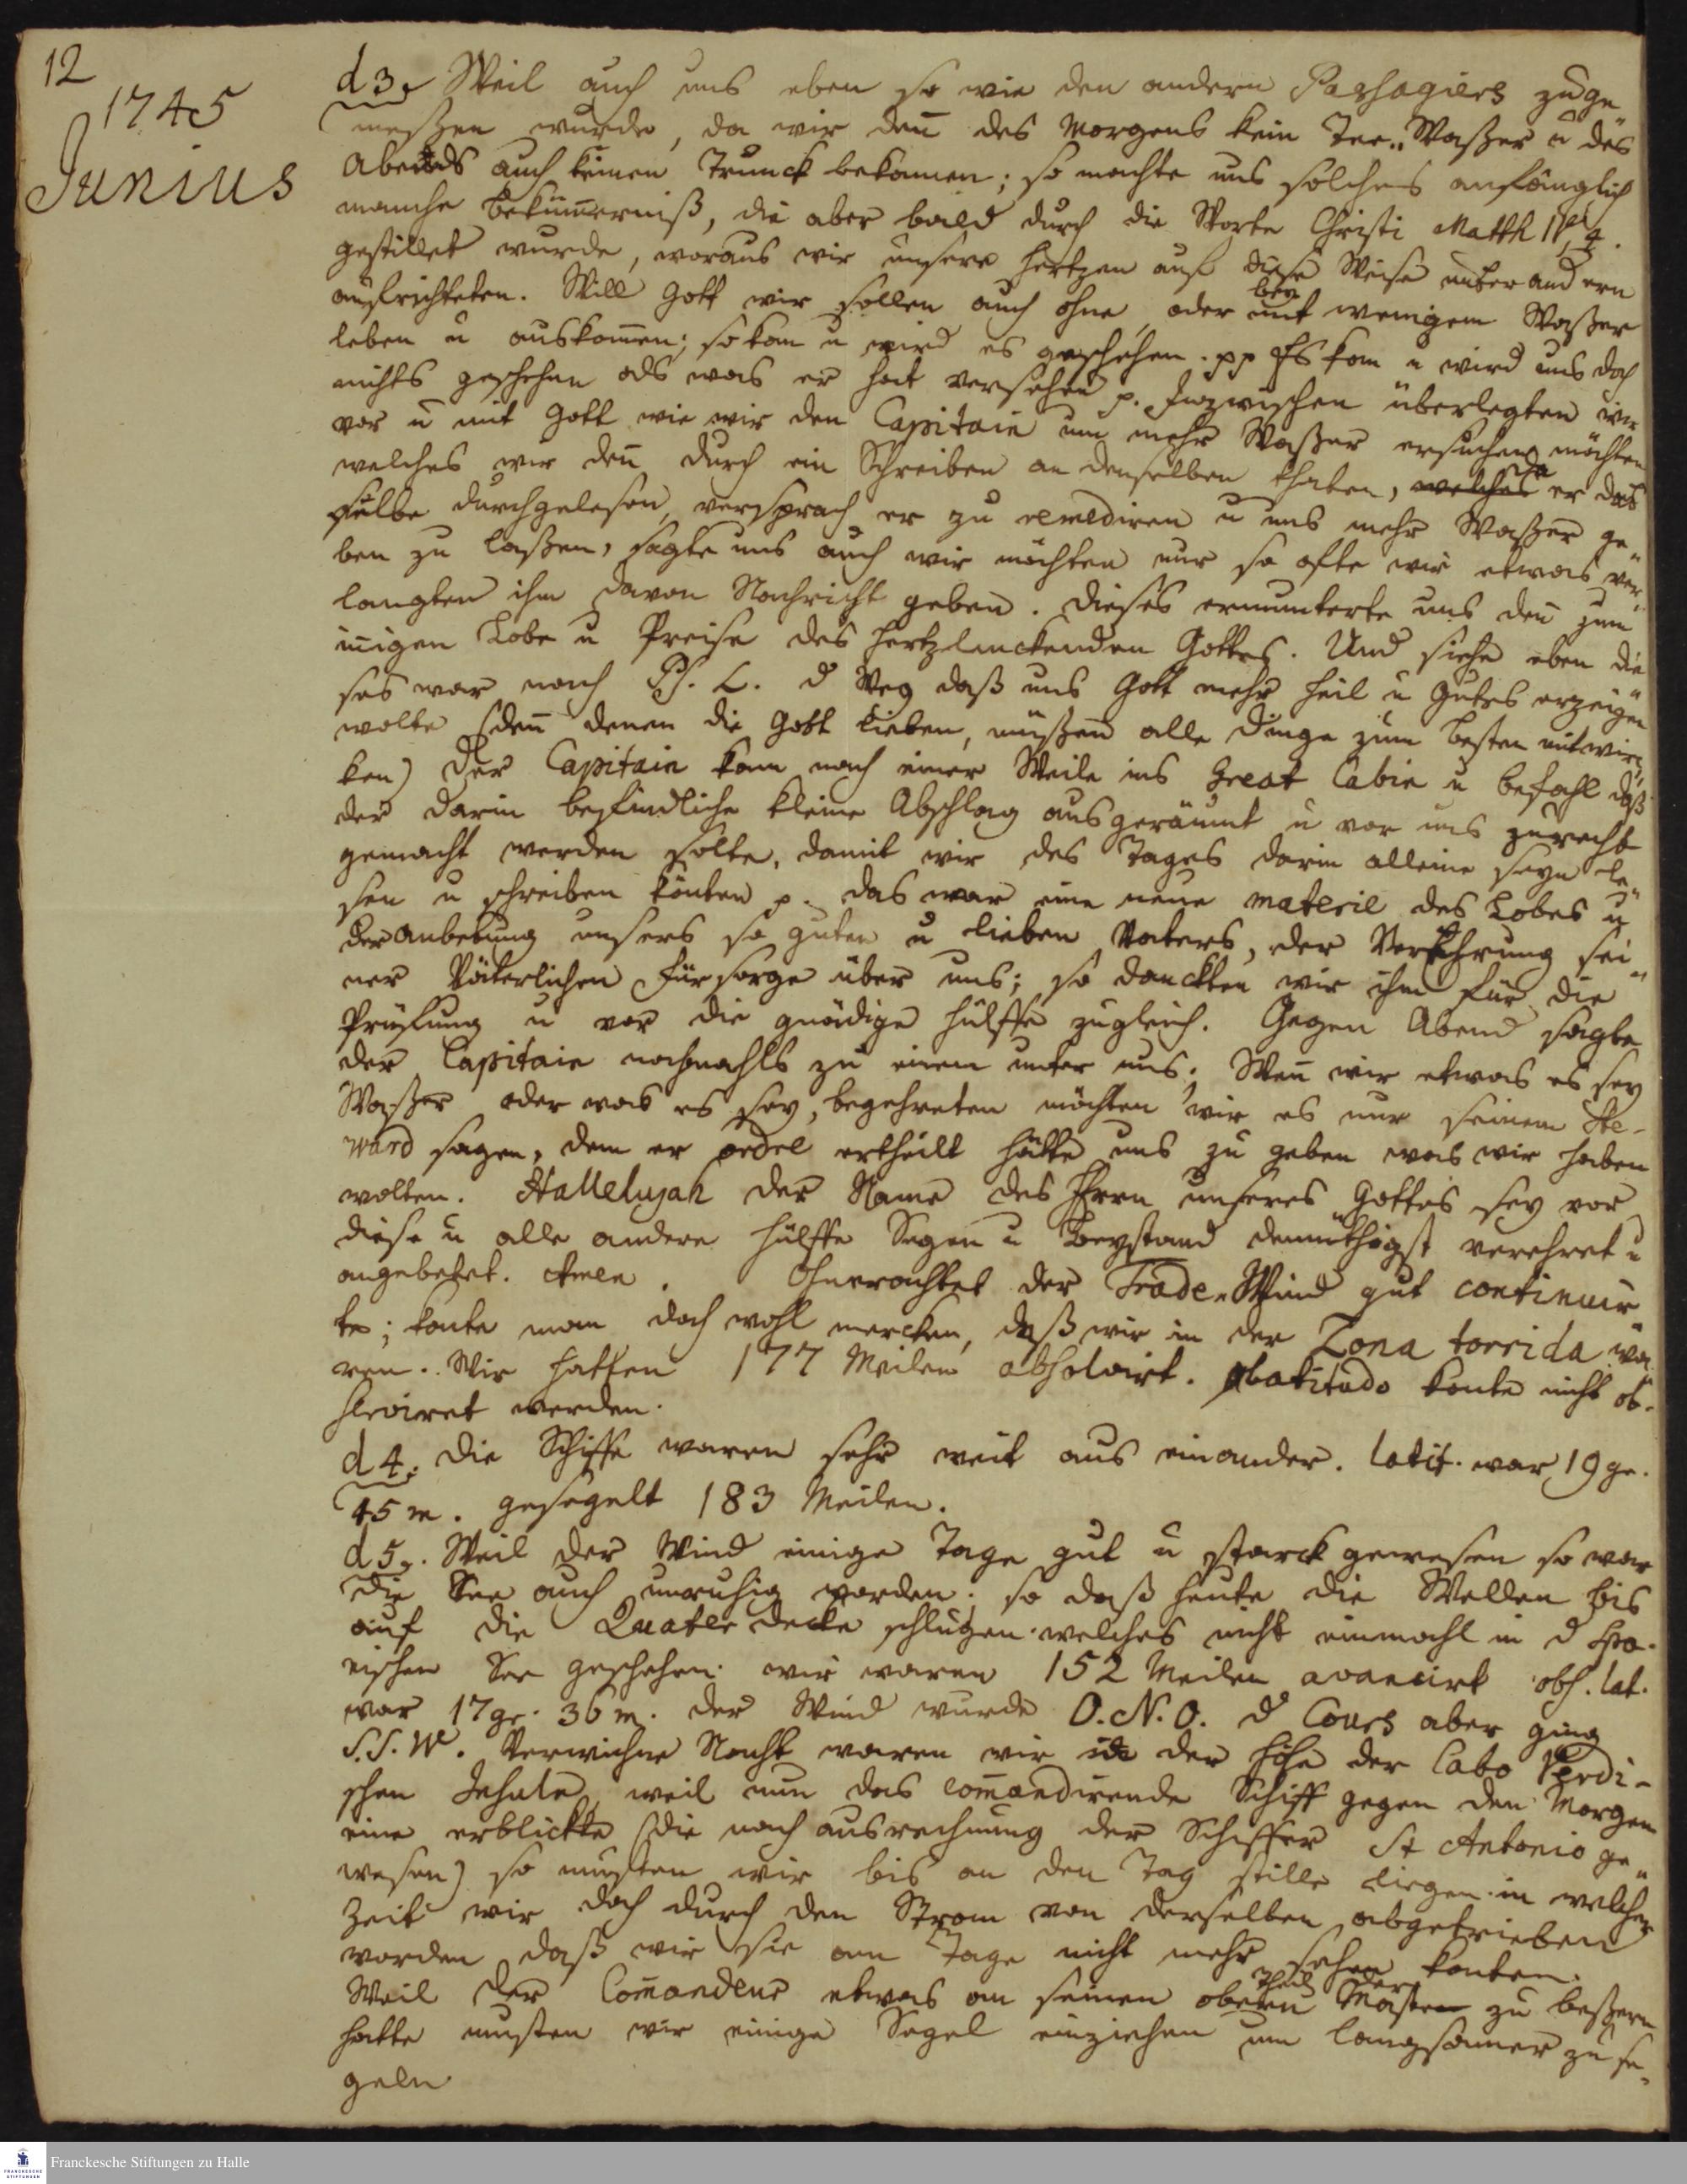 12
1745
Junius
d 3. Weil auch uns eben so wie den andern Passagiers zuge
meßen wurde, da wir deñ des Morgens kein Tee-Waßer u des
Abends auch keinen Trunck bekamen; so machte uns solches anfänglich
manche Bekümerniß, die aber bald durch die Worte Christi Matth IV, 4.
gestillet wurde, woraus wir unsere Hertzen auf diese Weise unter andern
aufrichteten. Will Gott wir sollen auch ohne, oder mit bey wenigem Waßer
leben u auskomen; so kan u wird es geschehen. pp Es kan u wird uns doch
nichts geschehen als was er hat versehen p. Inzwischen überlegten wir
vor u mit Gott wie wir den Capitain um mehr Waßer ersuchen möchten
welches wir deñ durch ein Schreiben an denselben thaten, welches da er das
selbe durchgelesen, versprach er zu remediren u uns mehr Waßer ge-
ben zu laßen, sagte uns auch wir möchten nur so ofte wir etwas ver-
langten ihm davon Nachricht geben. Dieses ermunterte uns deñ zum
iñigen Lobe u Preise des Hertzlenckenden Gottes. Und siehe eben die
ses war nach Ps. L. d Weg daß uns Gott mehr Heil u Gutes erzeigen
wolte (deñ denen die Gott lieben, müßen alle Dinge zum besten mitwirc-
ken) Der Capitain kam nach einer Weile ins Great Cabin u befahl daß
der darin befindliche kleine Abschlag ausgeräumt u vor uns zurecht
gemacht werden solte, damit wir des Tages darin alleine seyn le-
sen u schreiben könten p. das war eine neue materie des Lobes u
der Anbetung unsers so guten u lieben Vaters, der Verehrung sei-
ner Väterlichen Fürsorge über uns; so danckten wir ihm für die
Prüfung u vor die gnädige Hülffe zugleich. Gegen Abend sagte
der Capitain nochmahls zu einem unter uns: Weñ wir etwas es sey
Waßer oder was es sey, begehreten möchten wir es nur seinem Ste-
ward sagen, dem er ordre ertheilt hätte uns zu geben was wir haben
wolten. Hallelujah der Name des Herrn unseres Gottes sey vor
diese u alle andere Hülffe Segen u Beystand demüthigst verehret u
angebetet. Amen. Ohnerachtet der Trade-Wind gut continuir-
te; konte man doch wohl mercken, daß wir in der Zona torrida wa
ren. Wir hatten 177 Meilen absolvirt. Latitudo konte nicht ob-
serviret werden.
d 4. Die Schiffe waren sehr weit aus einander. Latit. war 19 gr.
45 m. gesegelt 183 Meilen.
d 5. Weil der Wind einige Tage gut u starck gewesen so war
die See auch unruhig worden: so daß heute die Wellen bis
auf die Quater decke schlugen welches nicht einmahl in d Spa-
nischen See geschehen. wir waren 152 Meilen avancirt obs. lat.
war 17 gr. 36 m. der Wind wurde O.N.O. d Cours aber ging
S.S.W. Verwichne Nacht waren wir in der Höhe der Cabo Verdi-
schen Insuln, weil nun das comandirende Schiff gegen den Morgen
eine erblickte (die nach ausrechnung der Schiffer St Antonio ge-
wesen) so musten wir bis an den Tag stille liegen in welcher
Zeit wir doch durch den Strom von derselben abgetrieben
worden daß wir sie am Tage nicht mehr sehen konten.
Weil der Comandeur etwas an seinen obern Theil der Masten zu beßern
hatte musten wir einige Segel einziehen um langsamer zu se-
geln
Franckesche Stiftungen zu Halle
FRANCKESCHE STIFTUNGEN